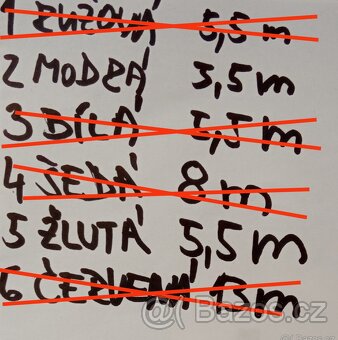 1 RŮŽOVÁ 5,5 m
2 MODRÁ 3,5 m
3 BÍLÁ 5,5 m
4 ŠEDÁ 8 m
5 ŽLUTÁ 5,5 m
6 ČERVENÁ 13 m
Bazos.cz